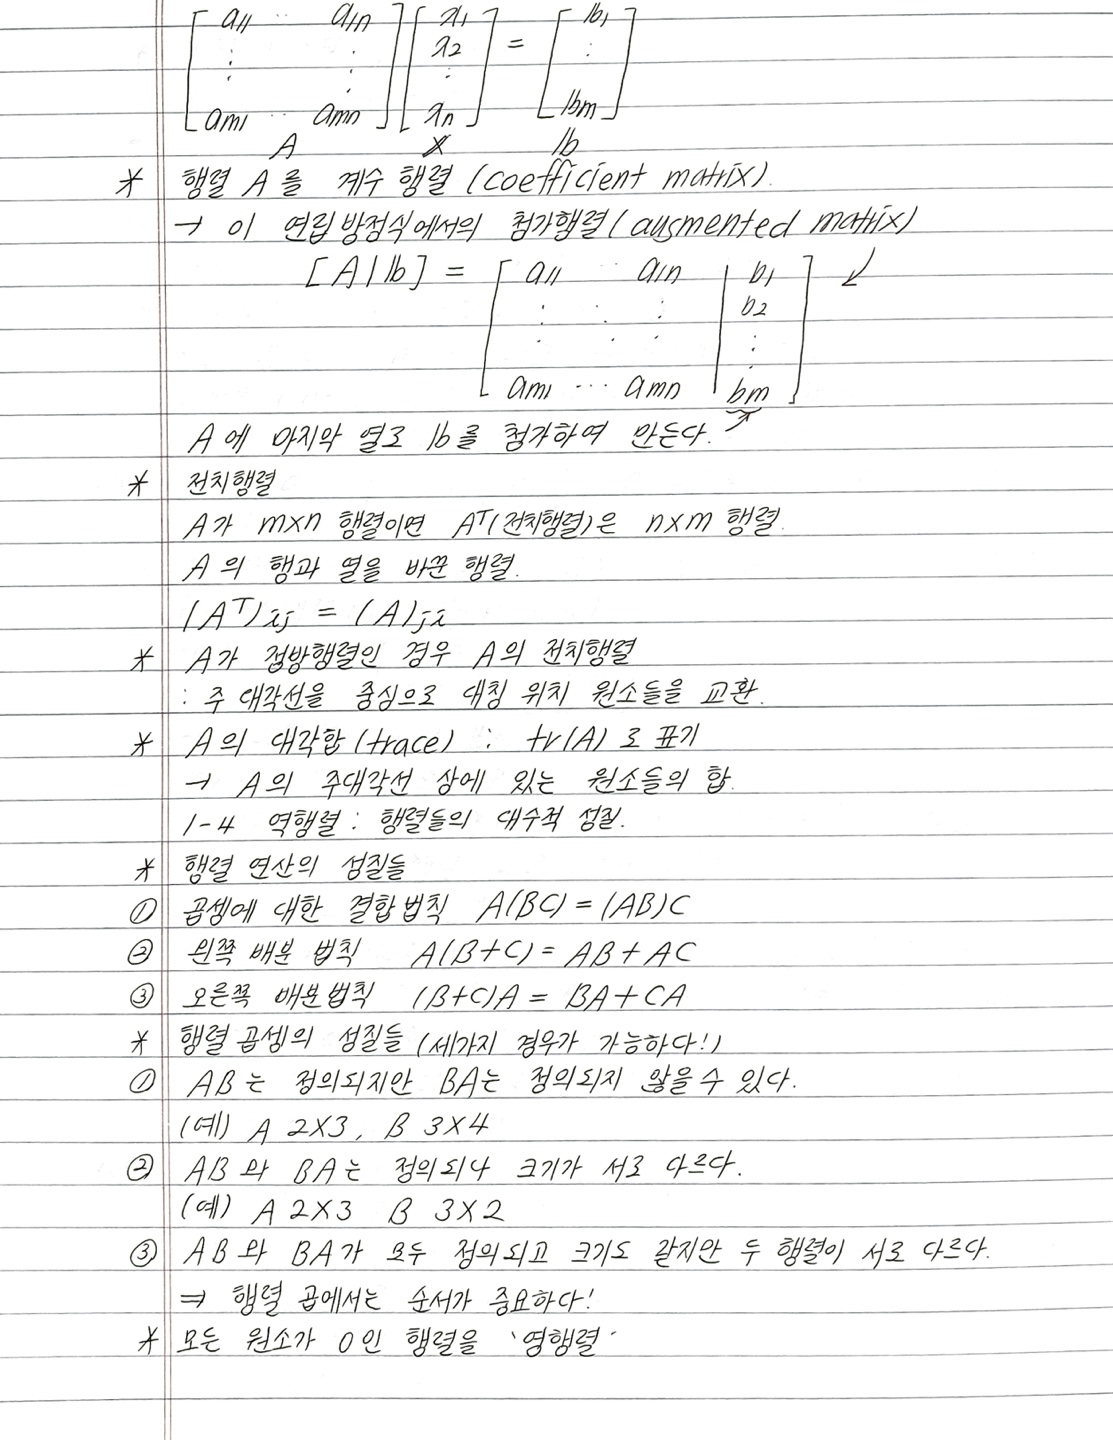 [ a11 ·· a1n ] [ x1 ] = [ b1 ]
x2
am1 ·· amn xn bm
A x b
* 행렬 A를 계수 행렬 (coefficient matrix).
→ 이 연립방정식에서의 첨가행렬 (augmented matrix)
[A|b] = [ a11 ·· a1n | b1 ]
b2
am1 ··· amn | bm
A에 마지막 열로 b를 첨가하여 만든다.
* 전치행렬
A가 m×n 행렬이면 Aᵀ(전치행렬)은 n×m 행렬.
A의 행과 열을 바꾼 행렬.
(Aᵀ)ij = (A)ji
* A가 정방행렬인 경우 A의 전치행렬
: 주 대각선을 중심으로 대칭 위치 원소들을 교환.
* A의 대각합 (trace) : tr(A)로 표기
→ A의 주대각선 상에 있는 원소들의 합.
1-4 역행렬 : 행렬들의 대수적 성질.
* 행렬 연산의 성질들
① 곱셈에 대한 결합법칙 A(BC) = (AB)C
② 왼쪽 배분 법칙 A(B+C) = AB + AC
③ 오른쪽 배분법칙 (B+C)A = BA + CA
* 행렬 곱셈의 성질들 (세가지 경우가 가능하다!)
① AB는 정의되지만 BA는 정의되지 않을 수 있다.
(예) A 2×3, B 3×4
② AB와 BA는 정의되나 크기가 서로 다르다.
(예) A 2×3 B 3×2
③ AB와 BA가 모두 정의되고 크기도 같지만 두 행렬이 서로 다르다.
⇒ 행렬 곱에서는 순서가 중요하다!
* 모든 원소가 0인 행렬을 '영행렬'